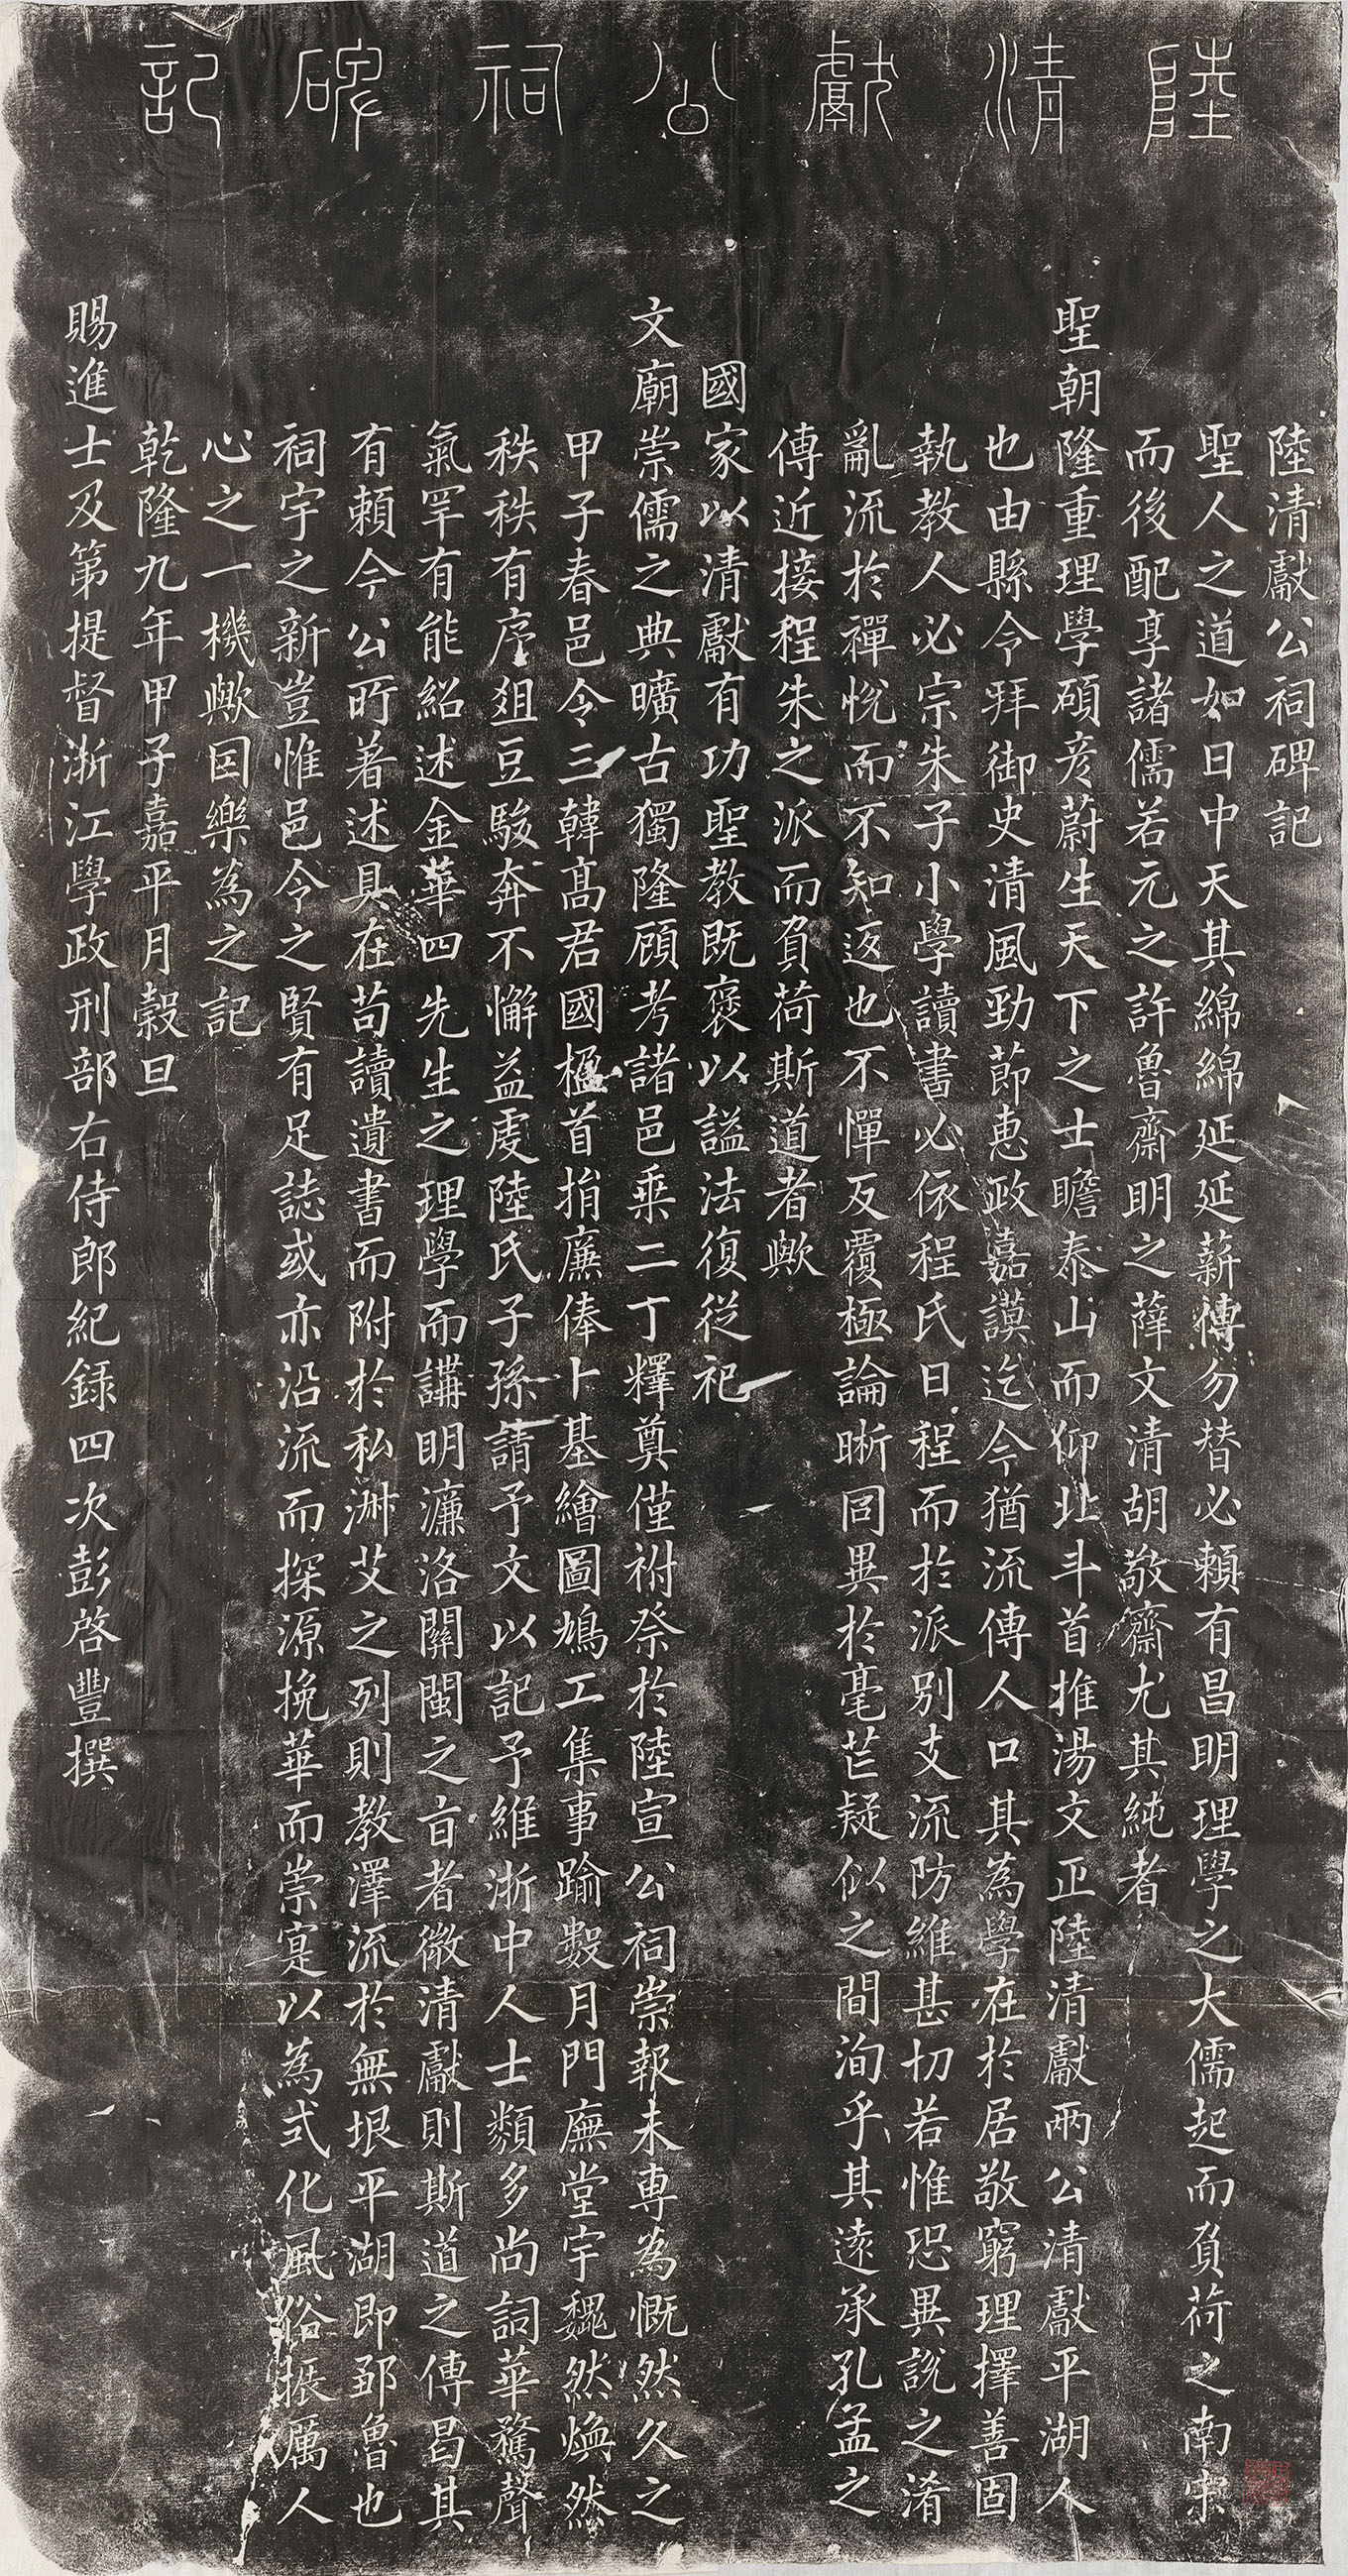 陸清獻公祠碑記
陸清獻公祠碑記
聖人之道如日中天其綿綿延延薪傳勿替必賴有昌明理學之大儒起而負荷之南宋
而後配享諸儒若元之許魯齋明之薛文清胡敬齋尤其純者
聖朝隆重理學碩彥蔚生天下之士瞻泰山而仰北斗首推湯文正陸清獻兩公清獻平湖人
也由縣令拜御史清風勁節惠政嘉謨迄今猶流傳人口其為學在於居敬窮理擇善固
執教人必宗朱子小學讀書必依程氏日程而於派別支流防維甚切若惟恐異說之淆
亂流於禪悅而不知返也不憚反覆極論晰同異於毫芒疑似之間洵乎其遠承孔孟之
傳近接程朱之派而負荷斯道者歟
國家以清獻有功聖教既褒以謚法復從祀
文廟崇儒之典曠古獨隆顧考諸邑乘二丁釋奠僅祔祭於陸宣公祠崇報未專為慨然久之
甲子春邑令三韓高君國楹首捐廉俸卜基繪圖鳩工集事踰數月門廡堂宇巍然煥然
秩秩有序俎豆駿奔不懈益虔陸氏子孫請予文以記予維浙中人士類多尚詞華騖聲
氣罕有能紹述金華四先生之理學而講明濂洛關閩之旨者微清獻則斯道之傳曷其
有賴今公所著述具在苟讀遺書而附於私淑艾之列則教澤流於無垠平湖即鄒魯也
祠宇之新豈惟邑令之賢有足誌或亦沿流而探源挽華而崇寔以為式化風俗振厲人
心之一機歟因樂為之記
乾隆九年甲子嘉平月穀旦
賜進士及第提督浙江學政刑部右侍郎紀錄四次彭啓豐撰